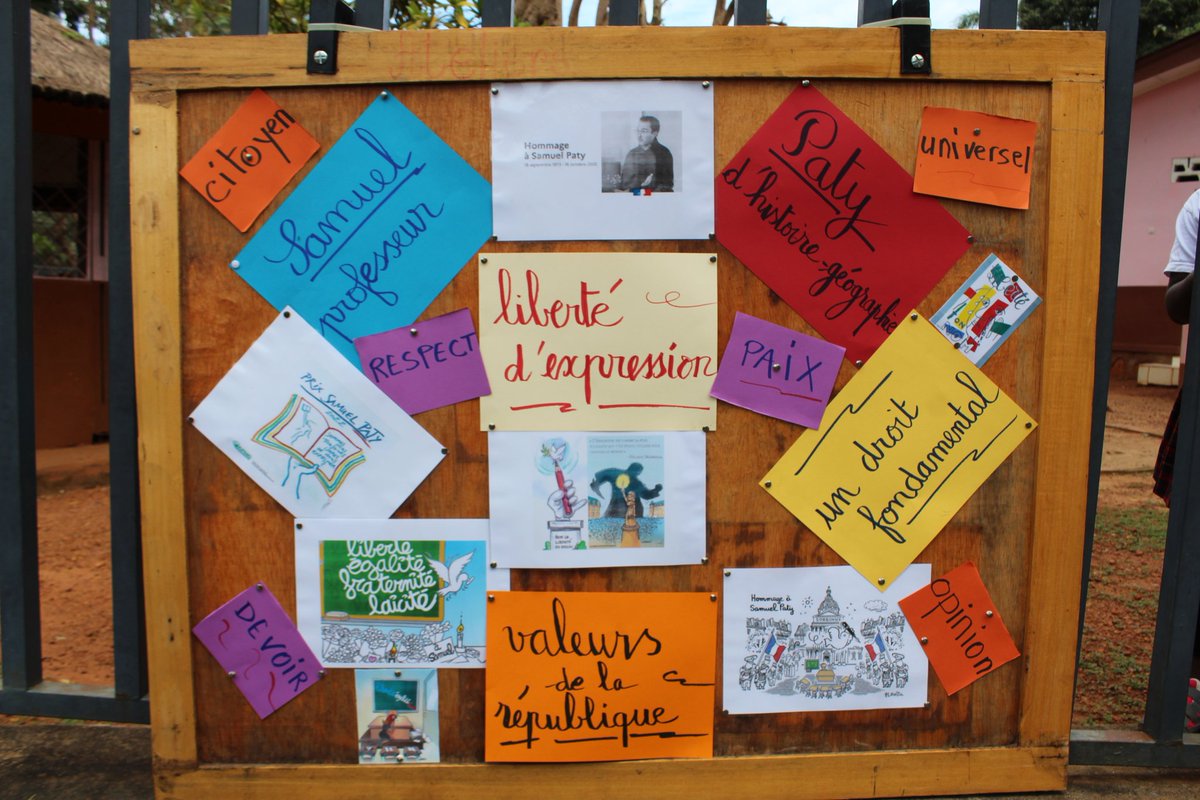 citoyen
Samuel
professeur
Hommage
à Samuel Paty
Paty
d'histoire-géographie
universel
RESPECT
liberté
d'expression
PAIX
PRIX SAMUEL PATY
un droit
fondamental
liberté
égalité
fraternité
laïcité
DEVOIR
valeurs
de la
république
Hommage à
Samuel Paty
SORBONNE
opinion